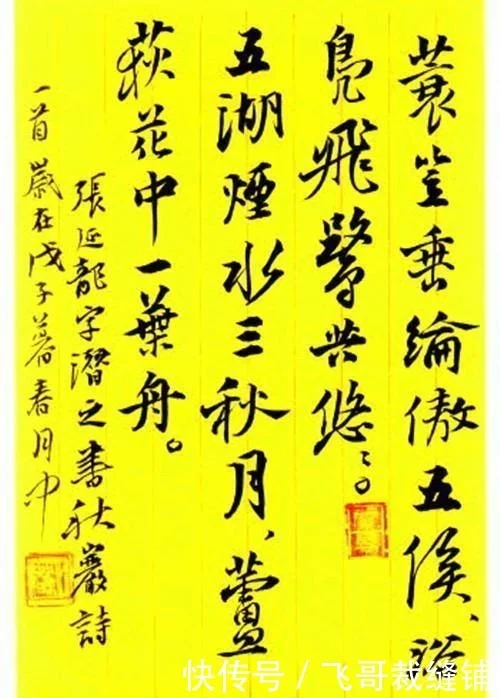 蓑笠垂綸傲五侯、浴
鳧飛鷺共悠〻。
五湖煙水三秋月、蘆
荻花中一葉舟。
張延龍字潛之書秋巖詩
一首歲在戊子暮春月中
快传号 / 飞哥裁缝铺